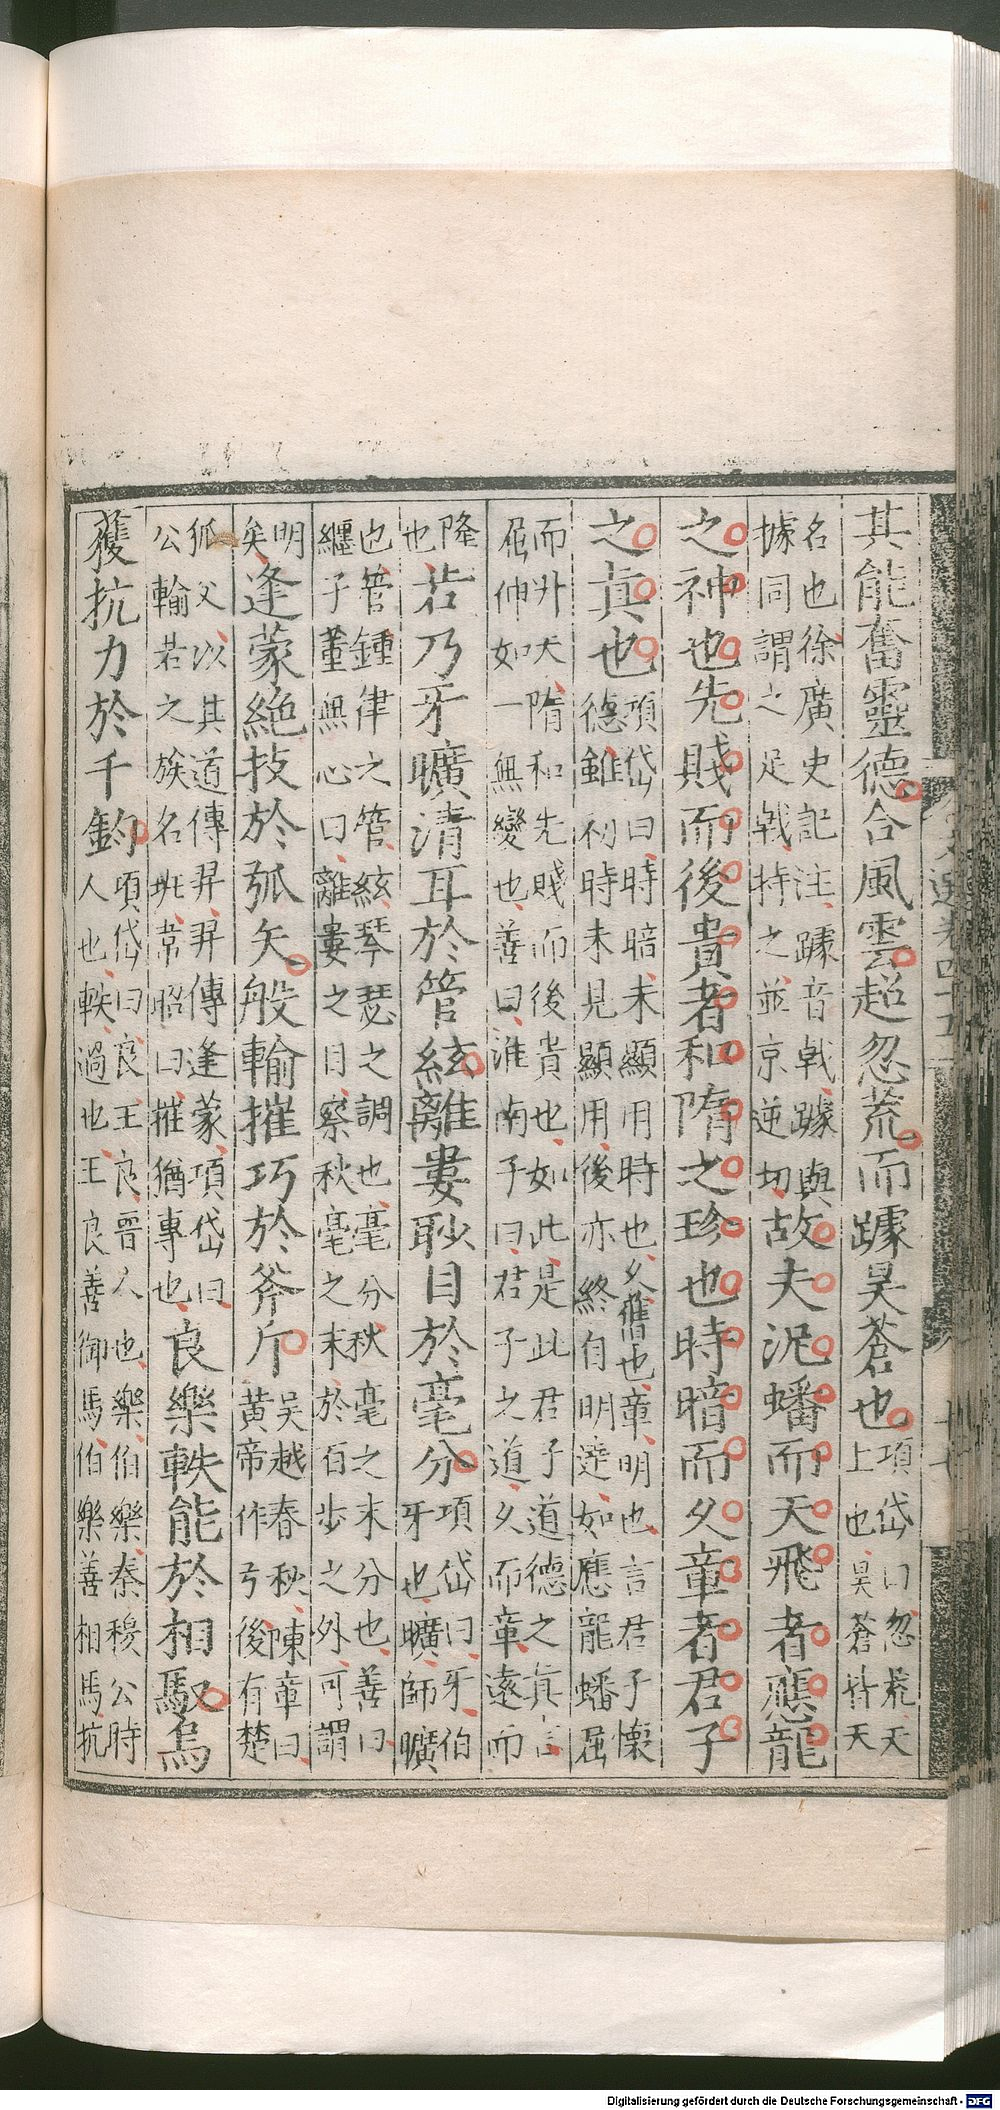 其能奮靈德合風雲超忽荒而躆昊蒼也項岱曰忽荒天上也昊蒼皆天
名也徐廣史記注躆音戟躆與據同謂之足戟持之並京逆切故夫泥蟠而天飛者應龍
之神也先賤而後貴者和隋之珍也時暗而久章者君子
之真也項岱曰時暗未顯用時也久舊也章明也言君子懷德雖初時未見顯用後亦終自明達如應龍蟠屈
而升天隋和先賤而後貴也如此是此君子道德之真言屈伸如一無變也善曰淮南子曰君子之道久而章遠而
隆也若乃牙曠清耳於管絃離婁眇目於毫分項岱曰牙伯牙也曠師曠
也管鍾律之管絃琴瑟之調也毫分秋毫之末分也善曰纏子董無心曰離婁之目察秋毫之末於百步之外可謂
明矣逢蒙絕技於弧矢般輸摧巧於斧斤吳越春秋陳章曰黃帝作弓後有楚
狐父以其道傳羿羿傳逢蒙項岱曰公輸若之族名班韋昭曰摧猶專也良樂軼能於相馭烏
獲抗力於千鈞項岱曰良王良晉人也樂伯樂秦穆公時人也軼過也王良善御馬伯樂善相馬抗
文選卷四十五
Digitalisierung gefördert durch die Deutsche Forschungsgemeinschaft - DFG